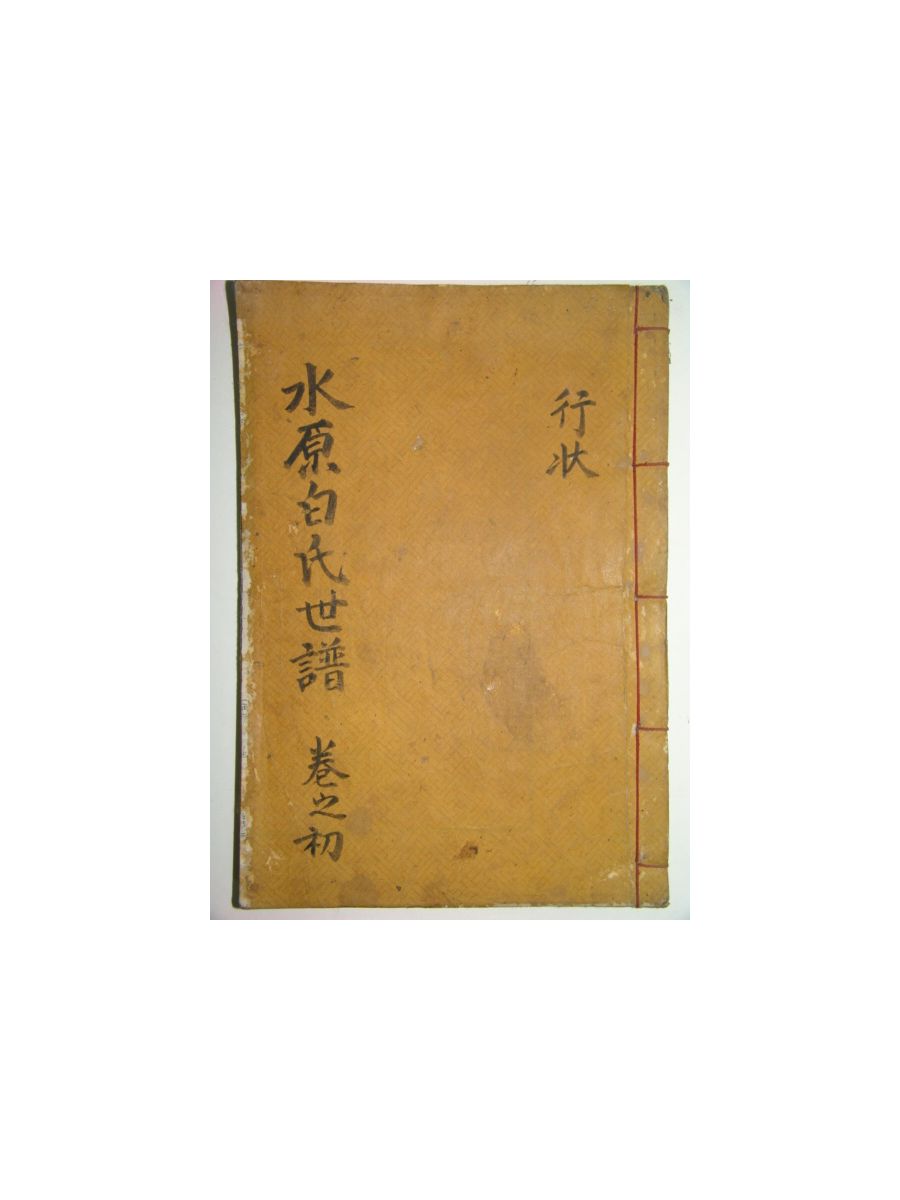 行狀
水原白氏世譜 卷之初